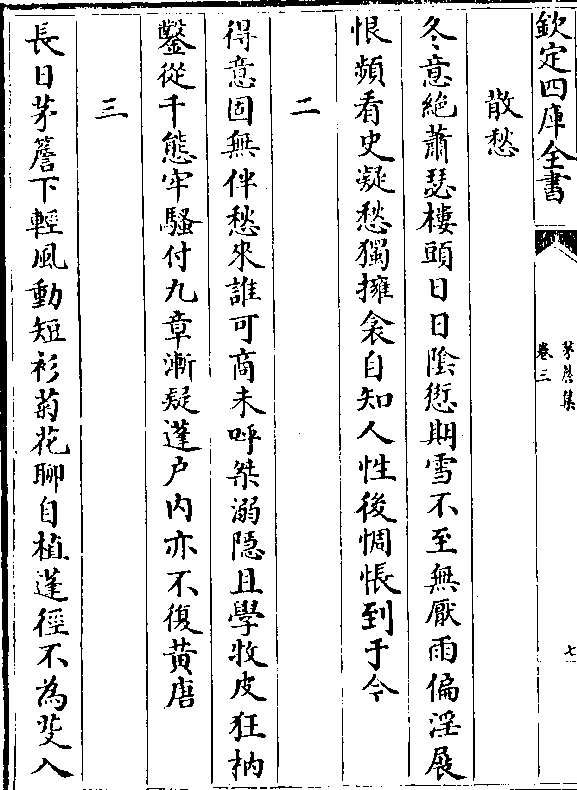 欽定四庫全書
茅簷集
卷三
七
散愁
冬意絕蕭瑟樓頭日日陰愆期雪不至無厭雨偏淫展
恨頻看史凝愁獨擁衾自知人性後惆悵到于今
二
得意固無伴愁來誰可商未呼桀溺隱且學牧皮狂枘
鑿從千態牢騷付九章漸疑蓬户内亦不復黄唐
三
長日茅簷下輕風動短衫菊花聊自植蓬徑不為芟入